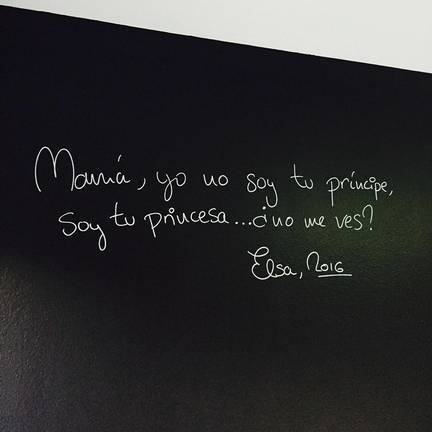 Mamá, yo no soy tu príncipe,
soy tu princesa...¿no me ves?
Elsa, 2016